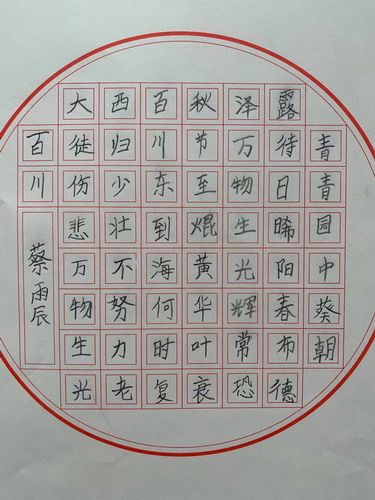 青青园中葵朝
露待日晞阳春布德
泽万物生光辉常恐
秋节至焜黄华叶衰
百川东到海何时复
西归少壮不努力老
大徒伤悲万物生光
百川
蔡雨辰